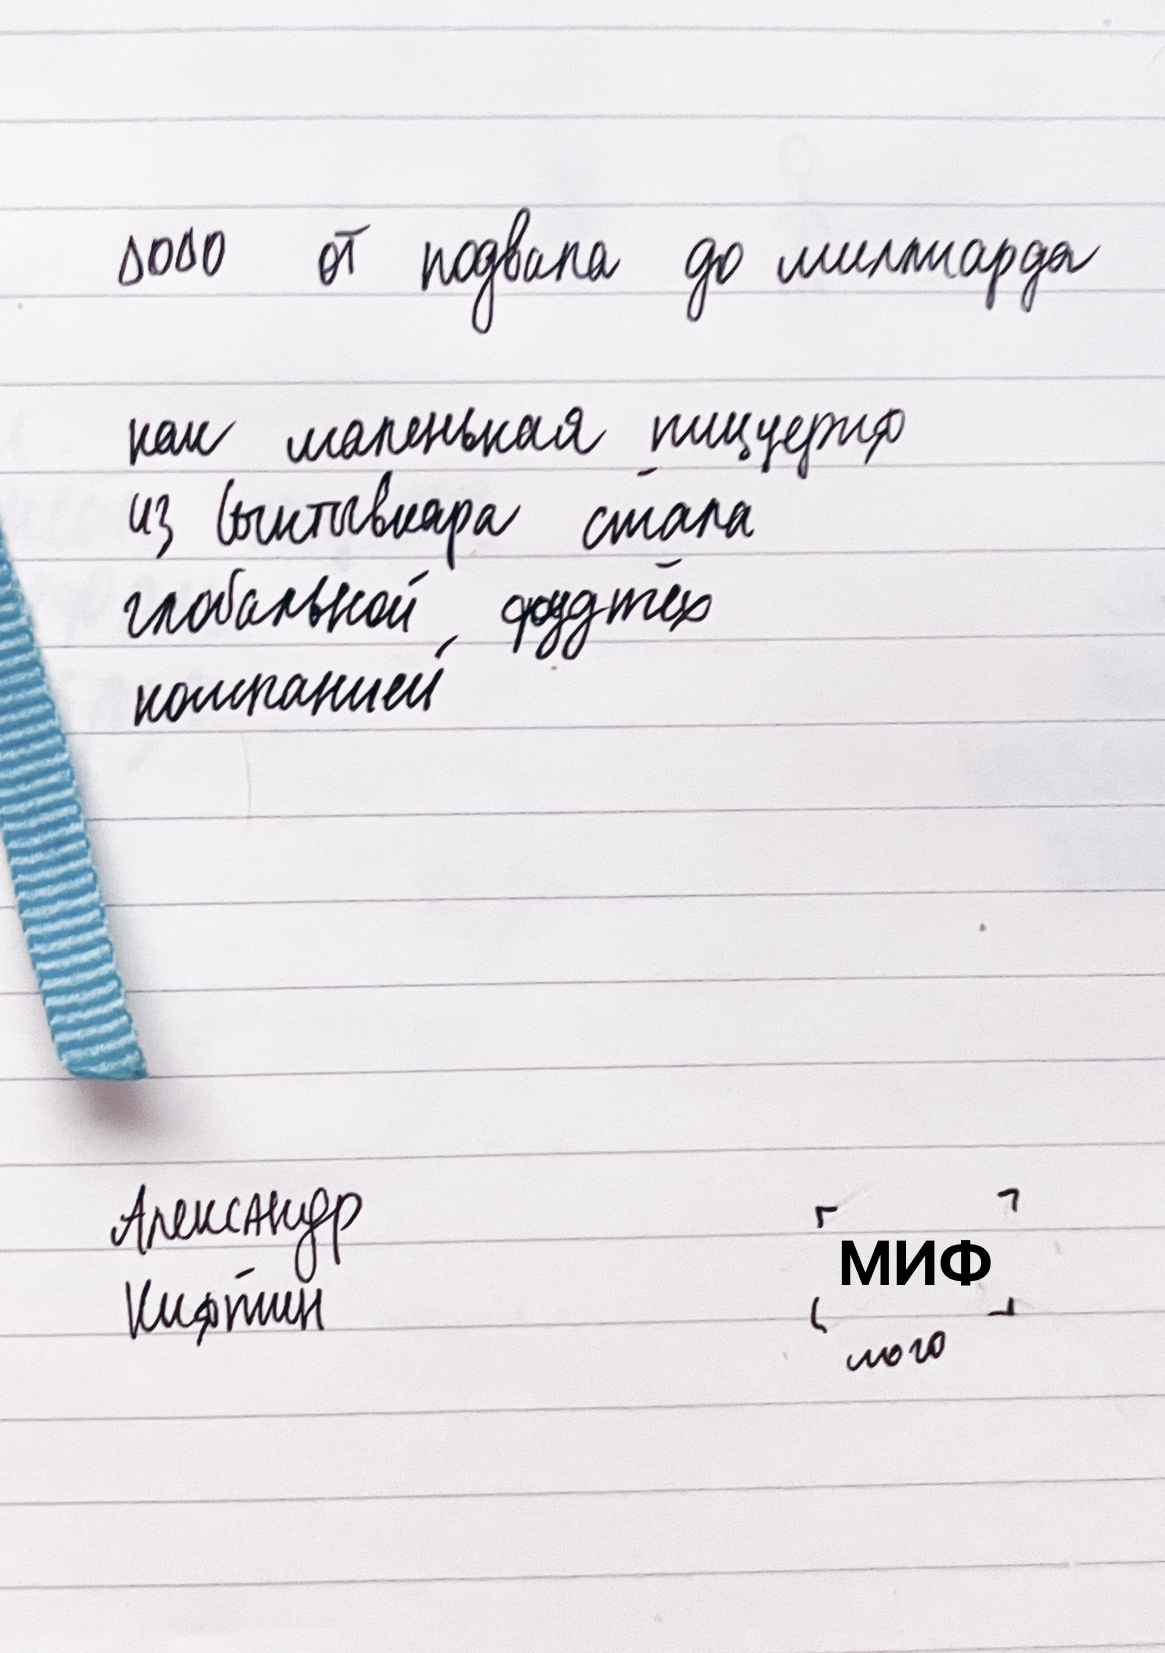 ДОДО от подвала до миллиарда
как маленькая пиццерия
из Сыктывкара стала
глобальной фудтех
компанией
Александр
Кифтин
МИФ
лого